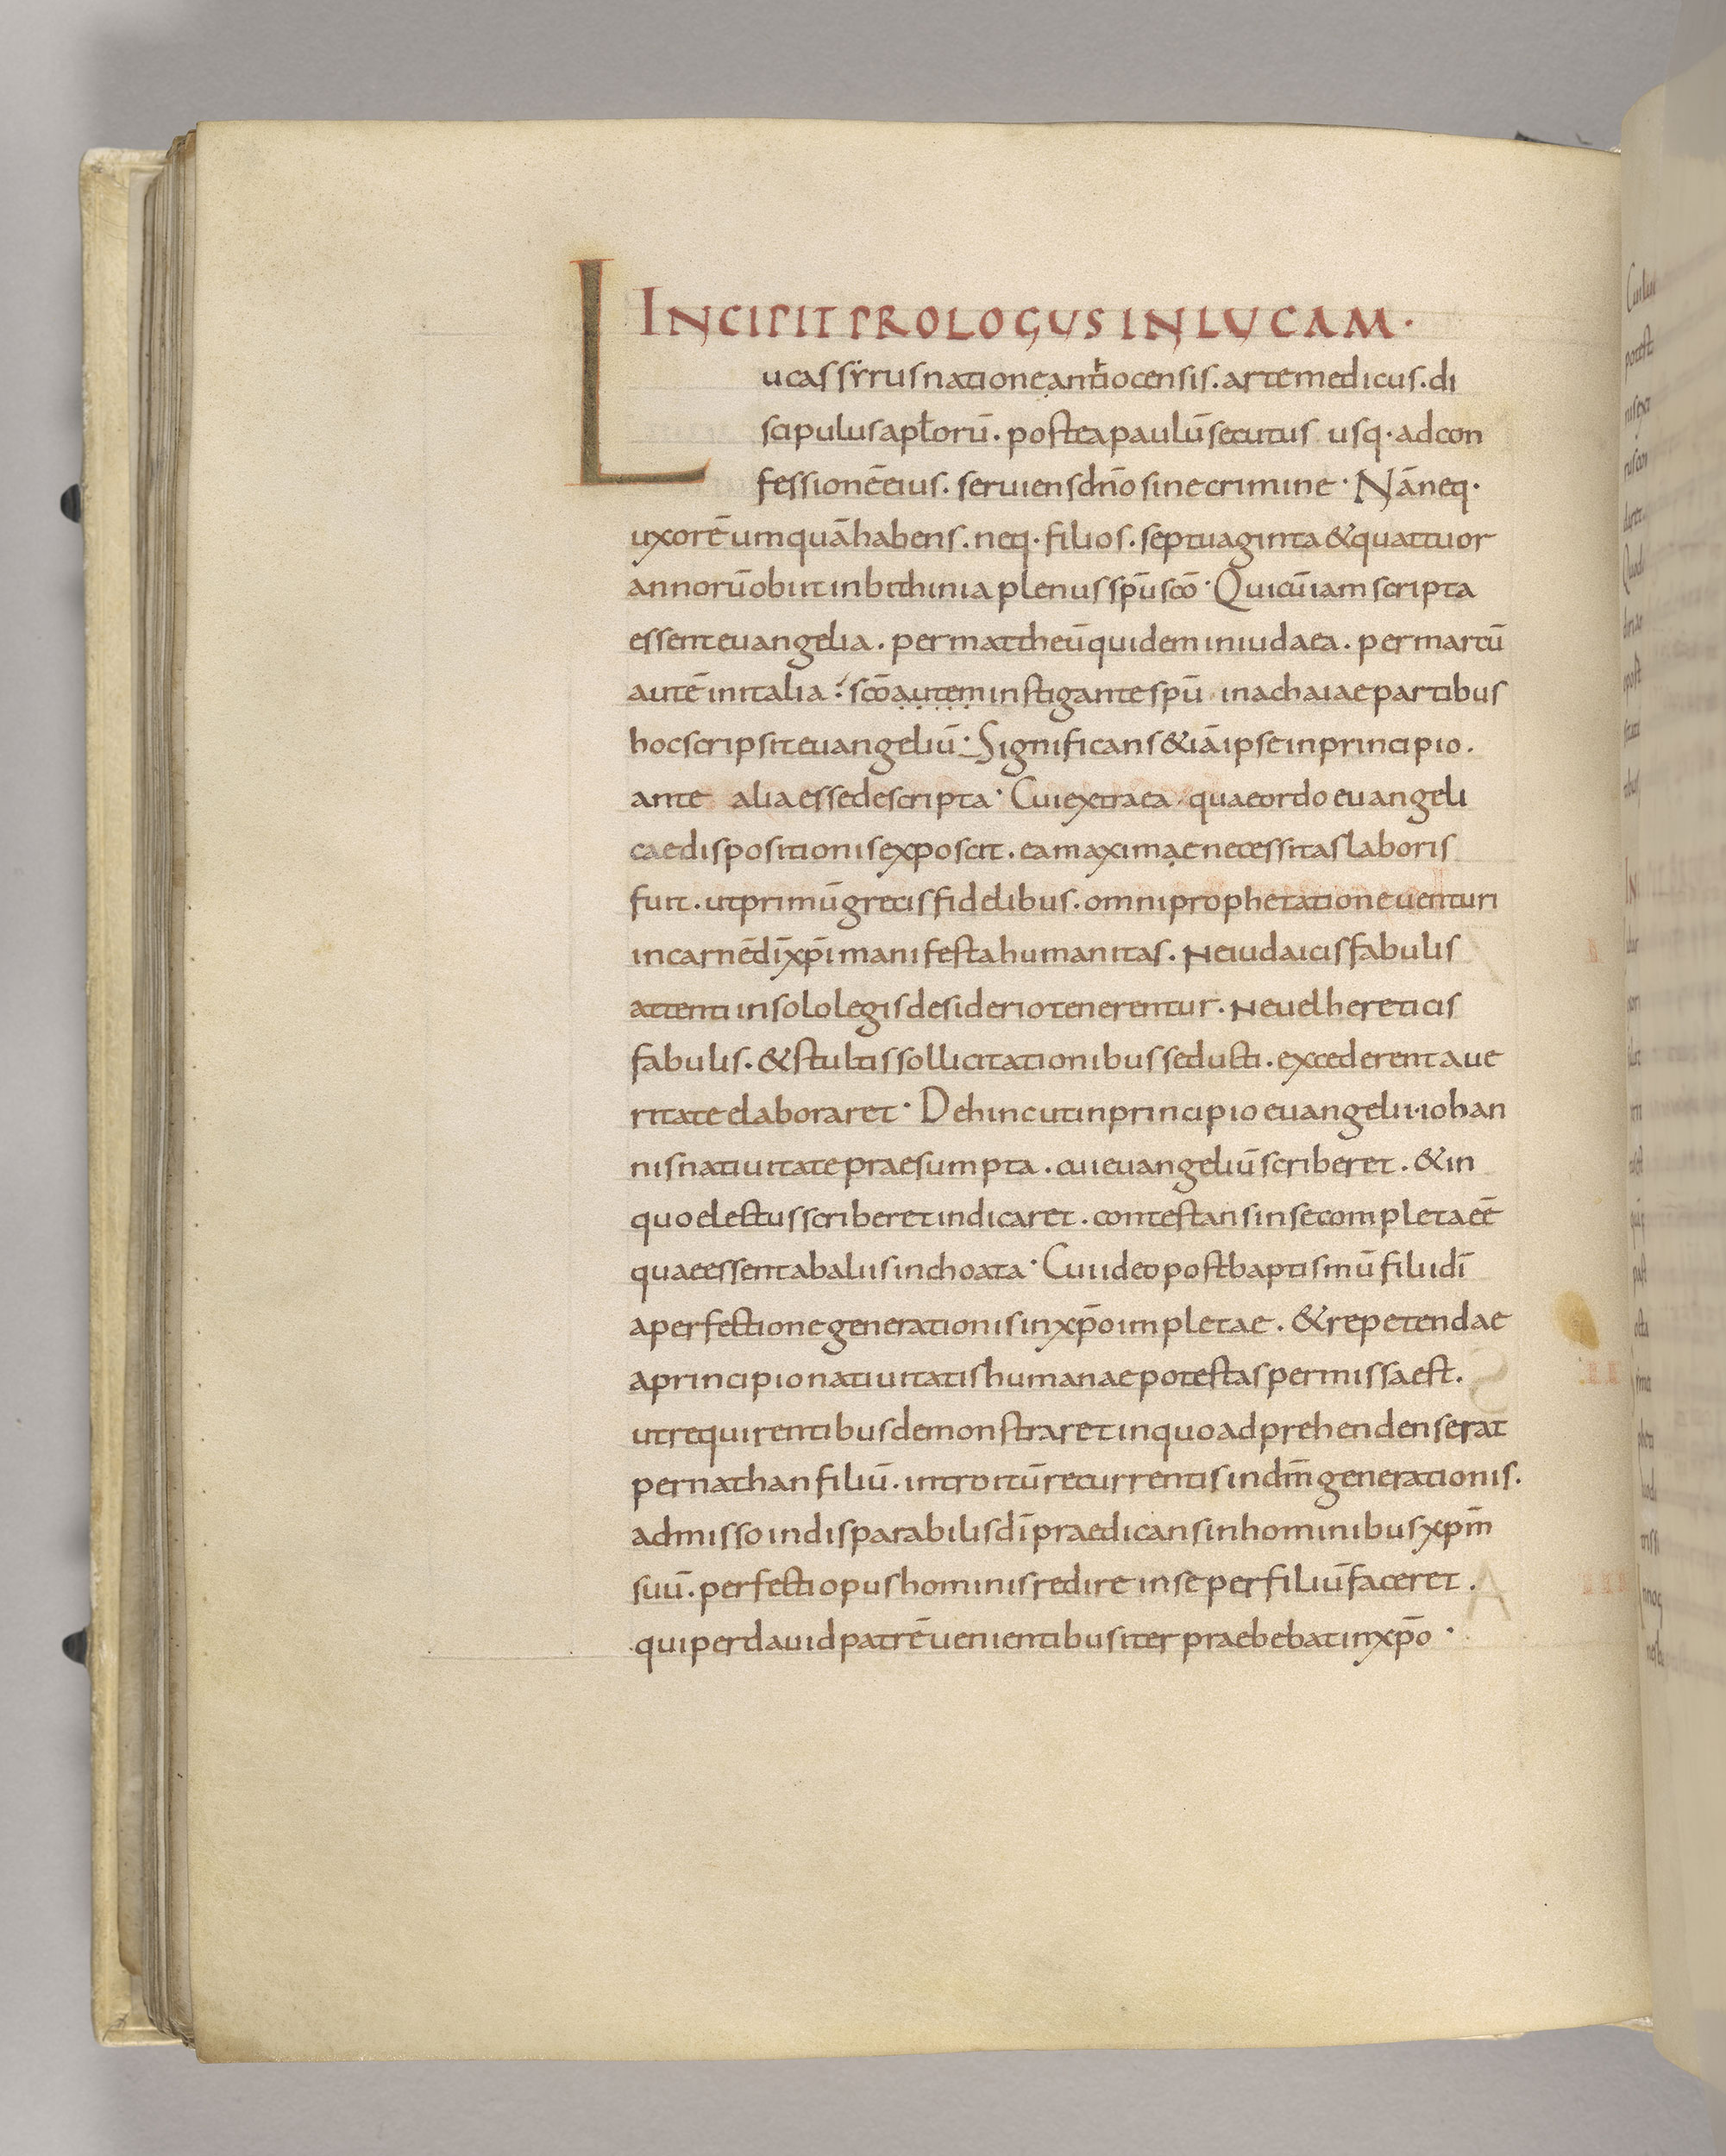 INCIPIT PROLOGUS IN LUCAM ·
Lucas syrus natione antiochensis . arte medicus . di
scipulus apłorū . postea paulū secutus usq · ad con
fessionē eius . seruiens dño sine crimine · Nā neq ·
uxorē umquā habens . neq · filios . septuaginta & quattuor
annorū obiit in bithinia plenus spū scō · Qui cū iam scripta
essent euangelia . per mattheū quidem in iudaea . per marcū
autē in italia : scō autem instigante spū in achaiae partibus
hoc scripsit euangeliū · Significans & iā ipse in principio .
ante alia esse descripta · Cui extra ea quae ordo euangeli
cae dispositionis exposcit . ea maximae necessitas laboris
fuit . ut primū grecis fidelibus . omni prophetatione uenturi
in carnē dī xpī manifesta humanitas . Ne iudaicis fabulis
attenti in solo legis desiderio tenerentur . Ne uel hereticis
fabulis . & stultis sollicitationibus seducti . excederent a ue
ritate elaboraret · Dehinc ut in principio euangelii · iohan
nis natiuitate praesumpta . cui euangeliū scriberet . & in
quo electus scriberet indicaret . contestans in se completa eē
quae essent ab aliis inchoata · Cui ideo post baptismū filii dī
a perfectione generationis in xpō impletae . & repetendae
a principio natiuitatis humanae potestas permissa est .
ut requirentibus demonstraret in quo adprehendens erat
per nathan filiū . introitū recurrentis in dm̄ generationis .
admisso indisparabilis dī praedicans in hominibus xpm̄
suū . perfecti opus hominis redire in se per filiū faceret .
qui per dauid patrē uenientibus iter praebebat in xpō ·